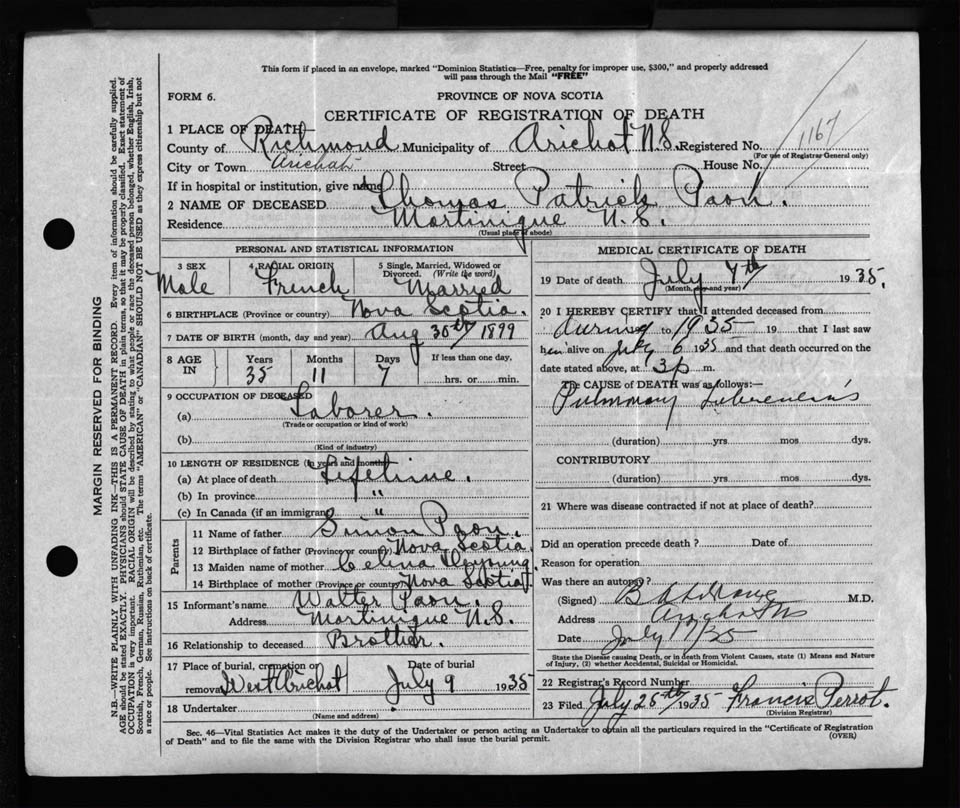 This form if placed in an envelope, marked "Dominion Statistics—Free, penalty for improper use, $300," and properly addressed
will pass through the Mail "FREE"
FORM 6.
PROVINCE OF NOVA SCOTIA
CERTIFICATE OF REGISTRATION OF DEATH
1 PLACE OF DEATH
County of Richmond Municipality of Arichat N.S. Registered No. 1167
(For use of Registrar General only)
City or Town Arichat Street House No.
If in hospital or institution, give name
2 NAME OF DECEASED Thomas Patrick Paon.
Residence Martinique N.S.
(Usual place of abode)
PERSONAL AND STATISTICAL INFORMATION
3 SEX 4 RACIAL ORIGIN 5 Single, Married, Widowed or Divorced. (Write the word)
Male French Married
6 BIRTHPLACE (Province or country) Nova Scotia.
7 DATE OF BIRTH (month, day and year) Aug 30th 1899
8 AGE IN Years Months Days If less than one day,
35 11 7 hrs. or min.
9 OCCUPATION OF DECEASED
(a) Laborer.
(Trade or occupation or kind of work)
(b)
(Kind of industry)
10 LENGTH OF RESIDENCE (In years and months)
(a) At place of death Lifetime.
(b) In province "
(c) In Canada (if an immigrant) "
Parents
11 Name of father Simon Paon.
12 Birthplace of father (Province or country) Nova Scotia.
13 Maiden name of mother Celina Deyoung.
14 Birthplace of mother (Province or country) Nova Scotia
15 Informant's name Walter Paon.
Address Martinique N.S.
16 Relationship to deceased Brother.
17 Place of burial, cremation or removal Date of burial
West Arichat July 9 1935
18 Undertaker
(Name and address)
MEDICAL CERTIFICATE OF DEATH
19 Date of death July 7th 1935.
(Month, day and year)
20 I HEREBY CERTIFY that I attended deceased from
during to 1935 19 that I last saw
him alive on July 6 1935 and that death occurred on the
date stated above, at 3 p m.
The CAUSE of DEATH was as follows:—
Pulmonary Tuberculosis
(duration) yrs mos dys.
CONTRIBUTORY
(duration) yrs mos dys.
21 Where was disease contracted if not at place of death?
Did an operation precede death? Date of
Reason for operation
Was there an autopsy?
(Signed) M.D.
Address Arichat NS
Date July 17/35
State the Disease causing Death, or in death from Violent Causes, state (1) Means and Nature
of Injury, (2) whether Accidental, Suicidal or Homicidal.
22 Registrar's Record Number
23 Filed July 25th 1935 Francis Perrot.
(Division Registrar)
Sec. 46—Vital Statistics Act makes it the duty of the Undertaker or person acting as Undertaker to obtain all the particulars required in the "Certificate of Registration
of Death" and to file the same with the Division Registrar who shall issue the burial permit.
(OVER)
MARGIN RESERVED FOR BINDING
N.B.—WRITE PLAINLY WITH UNFADING INK—THIS IS A PERMANENT RECORD. Every item of information should be carefully supplied.
AGE should be stated EXACTLY. PHYSICIANS should STATE CAUSE OF DEATH in plain terms, so that it may be properly classified. Exact statement of
OCCUPATION is very important. RACIAL ORIGIN will be described by stating to what people or race the deceased person belonged, whether English, Irish,
Scottish, French, German, Russian, Ruthenian, etc. The terms "AMERICAN" or "CANADIAN" SHOULD NOT BE USED as they express citizenship but not
a race or people. See instructions on back of certificate.